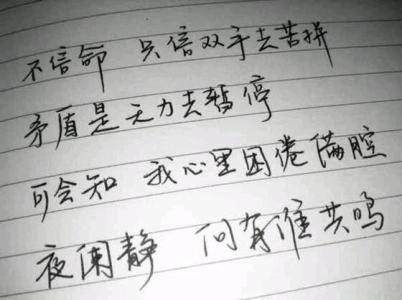 不信命 只信双手去苦拼
矛盾是无力去暂停
可会知 我心里困倦满腔
夜阑静 问有谁共鸣